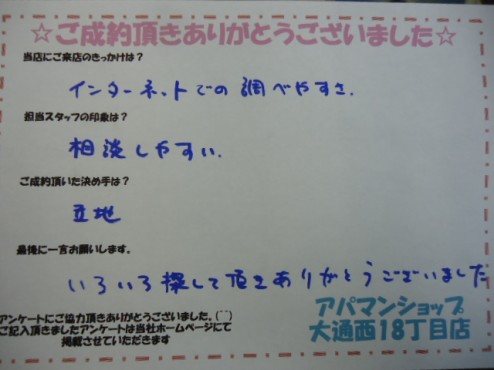 ☆ご成約頂きありがとうございました☆
当店にご来店のきっかけは？
インターネットでの調べやすさ。
担当スタッフの印象は？
相談しやすい。
ご成約頂いた決め手は？
立地
最後に一言お願いします。
いろいろ探して頂きありがとうございました
アンケートにご協力頂きありがとうございました。(^^)
ご記入頂きましたアンケートは当社ホームページにて
掲載させていただきます
アパマンショップ
大通西18丁目店